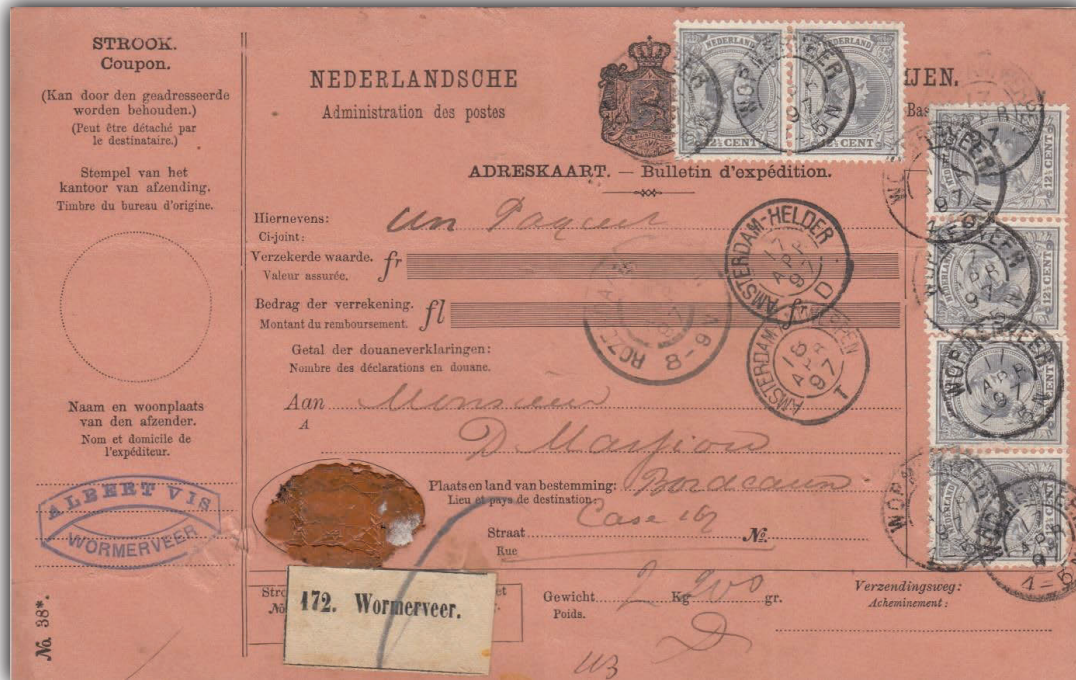 STROOK.
Coupon.
(Kan door den geadresseerde
worden behouden.)
(Peut être détaché par
le destinataire.)
Stempel van het
kantoor van afzending.
Timbre du bureau d'origine.
Naam en woonplaats
van den afzender.
Nom et domicile de
l'expéditeur.
ALBERT VIS
WORMERVEER
No. 38*.
NEDERLANDSCHE
Administration des postes
IJEN.
Bas
ADRESKAART. — Bulletin d'expédition.
Hiernevens: un Paquet
Ci-joint:
Verzekerde waarde. fr
Valeur assurée.
Bedrag der verrekening. fl
Montant du remboursement.
Getal der douaneverklaringen:
Nombre des déclarations en douane.
Aan Monsieur
A
D.
Plaats en land van bestemming: Bordeaux
Lieu et pays de destination:
Case
Straat No.
Rue
172. Wormerveer.
Gewicht 2 Kg 200 gr.
Poids.
D
Verzendingsweg:
Acheminement:
NEDERLAND
NEDERLAND
CENT
CENT
12½ CENT
12½ CENT
WORMERVEER
AMSTERDAM-HELDER
17
APR
97
D
AMSTERDAM
18
APR
97
T
8-9V
WORMERVEER
1
APR
97